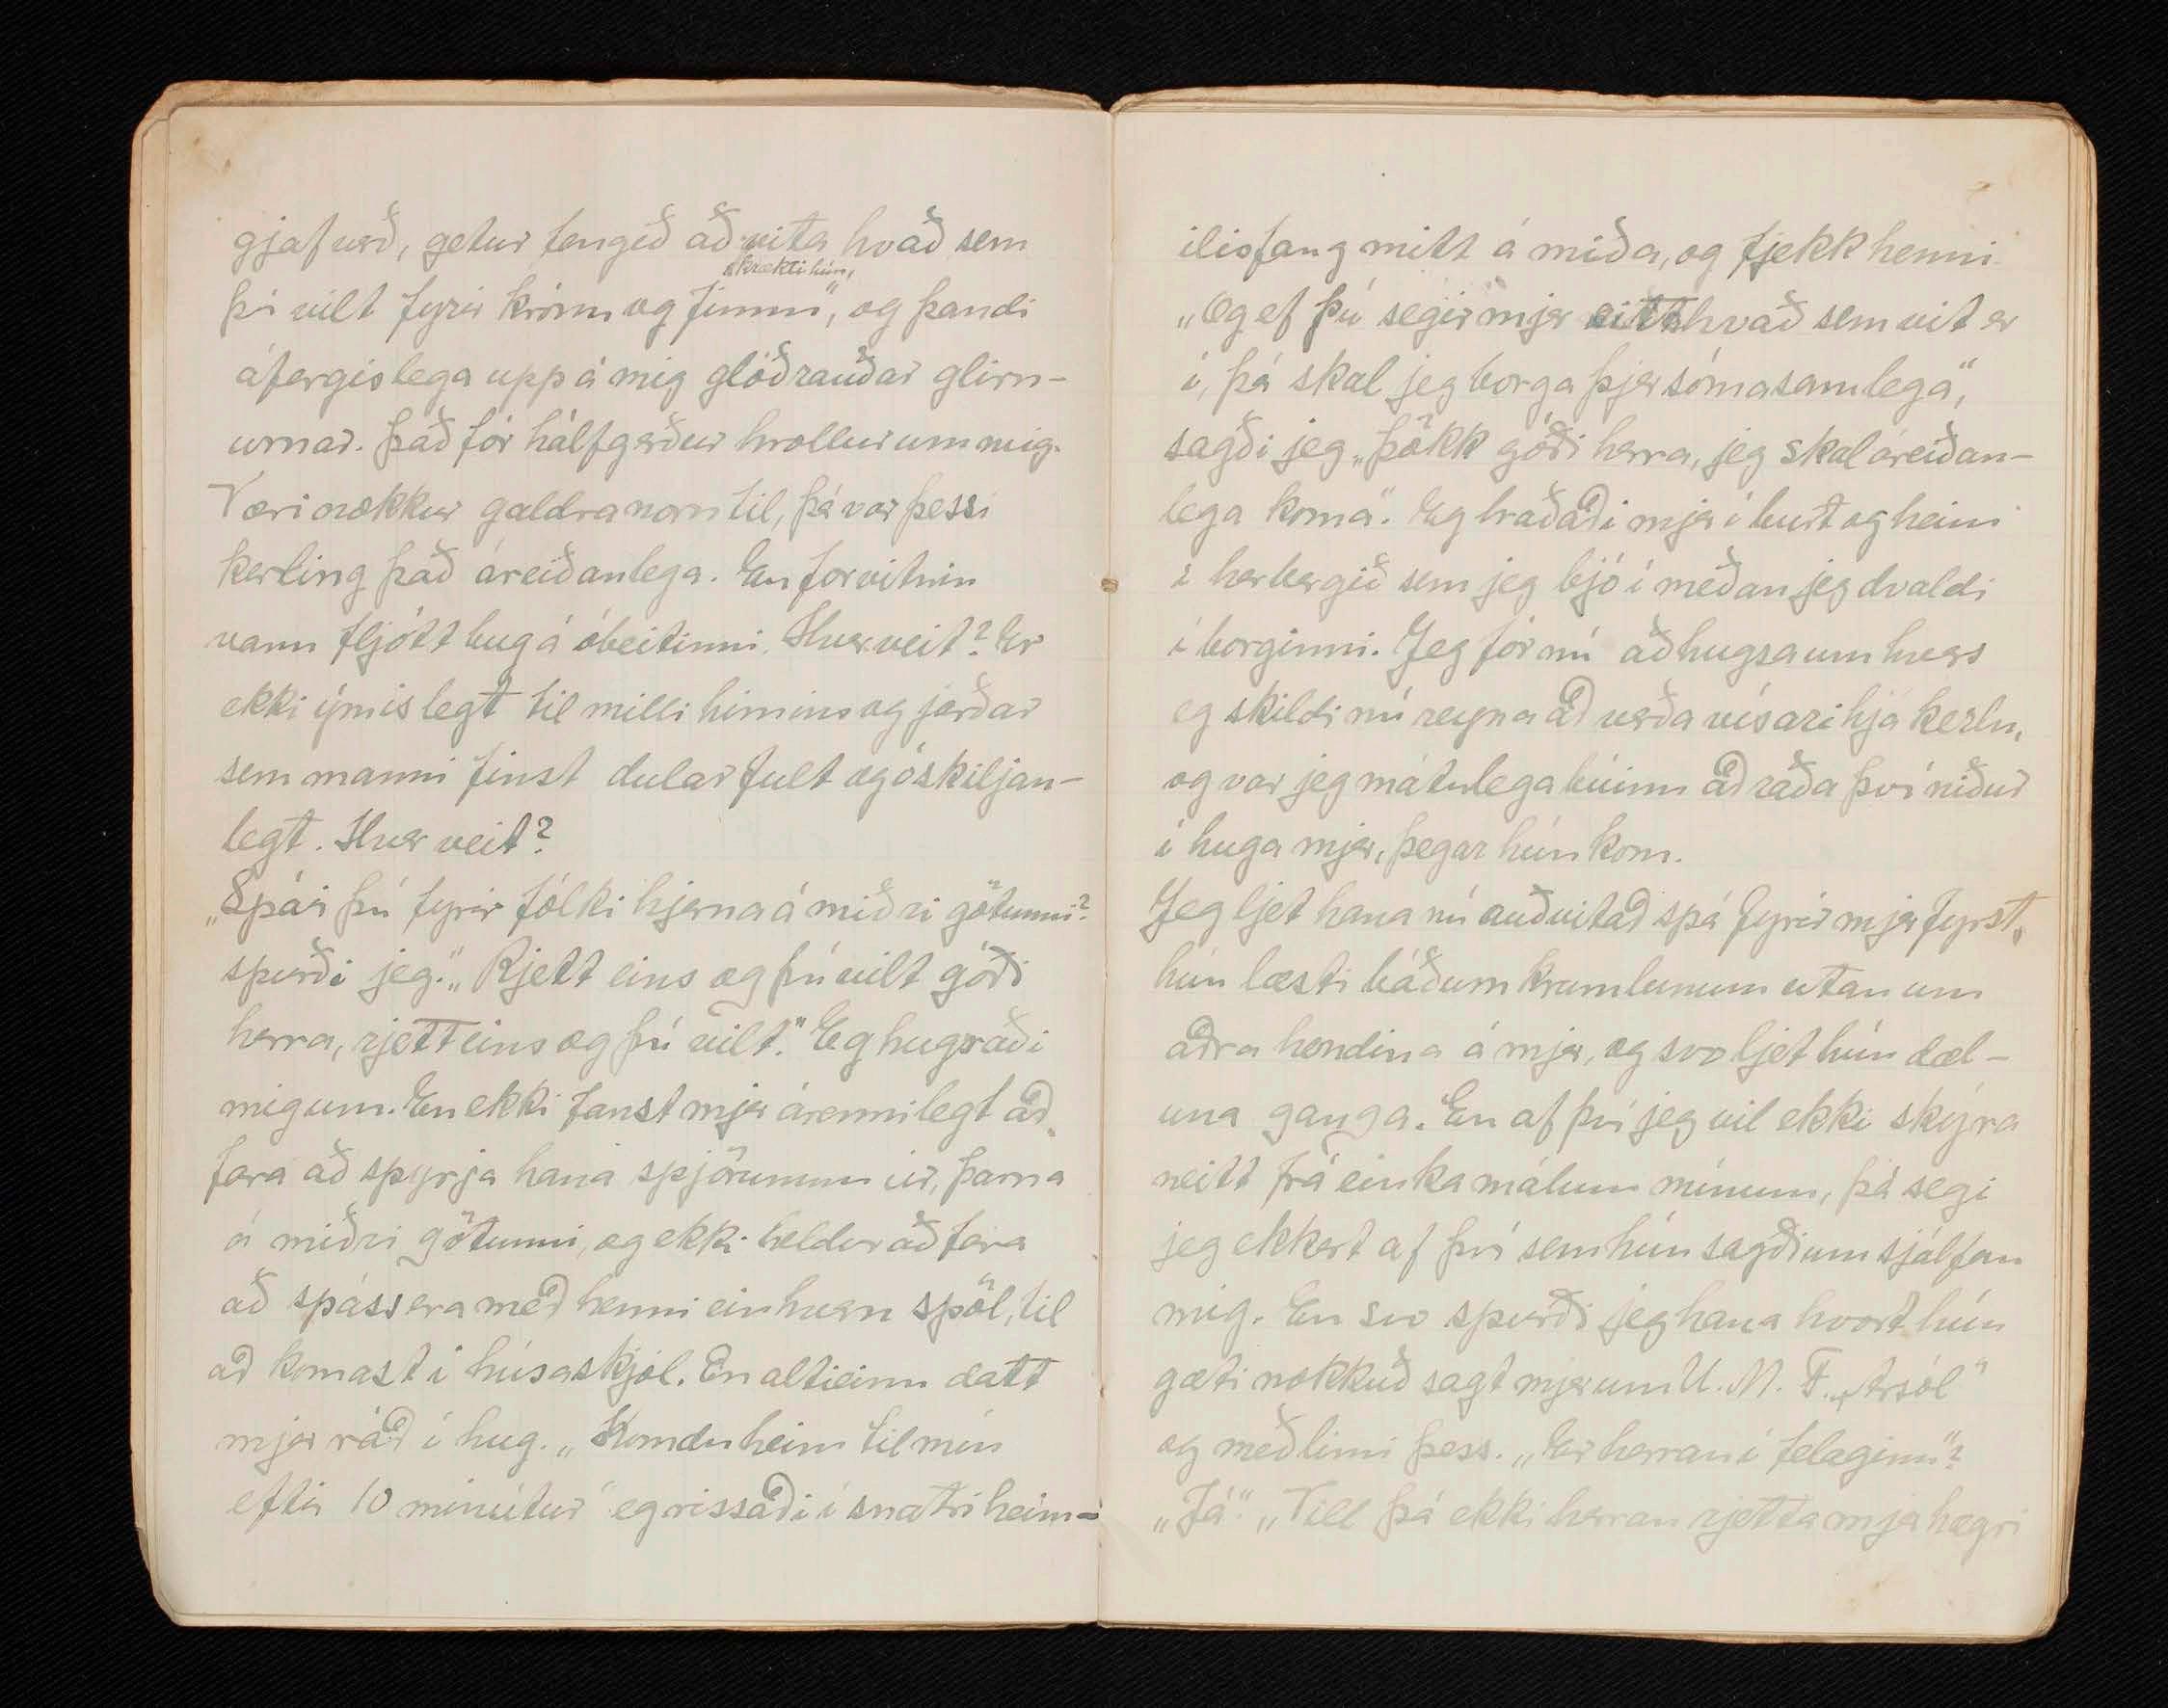 gjafverð, getur fengið að vita hvað sem
skrækti hún,
þú vilt fyrir krónu og fimm", og þandi
áfergislega upp á mig glóðrauðar glirn-
urnar. Það fór hálfgerður hrollur um mig.
Væri nokkur galdranorn til, þá var þessi
kerling það áreiðanlega. En forvitnin
vann fljótt bug á óbeitinni. Hver veit? Er
ekki ýmislegt til milli himins og jarðar
sem manni finst dularfult og óskiljan-
legt. Hver veit?
„Spáir þú fyrir fólki hjerna á miðri götunni?
spurði jeg." „Rjett eins og þú vilt góði
herra, rjett eins og þú vilt." Eg hugsaði
mig um. En ekki fanst mjer árennilegt að
fara að spyrja hana spjörunum úr, þarna
á miðri götunni, og ekki heldur að fara
að spássera með henni einhvern spöl, til
að komast í húsaskjól. En alt í einu datt
mjer ráð í hug. „Komdu heim til mín
eftir 10 mínútur" eg rissaði í snatri heim-
ilisfang mitt á miða, og fjekk henni.
„Og ef þú segir mjer eitthvað sem vit er
í, þá skal jeg borga þjer sómasamlega",
sagði jeg „Þökk góði herra, jeg skal áreiðan-
lega koma". Eg hraðaði mjer í burt og heim
í herbergið sem jeg bjó í meðan jeg dvaldi
í borginni. Jeg fór nú að hugsa um hvers
eg skildi nú reyna að verða vísari hjá kerlu,
og var jeg mátulega búinn að ráða því niður
í huga mjer, þegar hún kom.
Jeg ljet hana nú auðvitað spá fyrir mjer fyrst,
hún læsti báðum krumlunum utan um
aðra hendina á mjer, og svo ljet hún dæl-
una ganga. En af því jeg vil ekki skýra
neitt frá einkamálum mínum, þá segi
jeg ekkert af því sem hún sagði um sjálfan
mig. En svo spurði jeg hana hvort hún
gæti nokkuð sagt mjer um U. M. F. „Ársól"
og meðlimi þess. „Er herran í felaginu"?
„Já". „Vill þá ekki herran rjetta mjer hægri